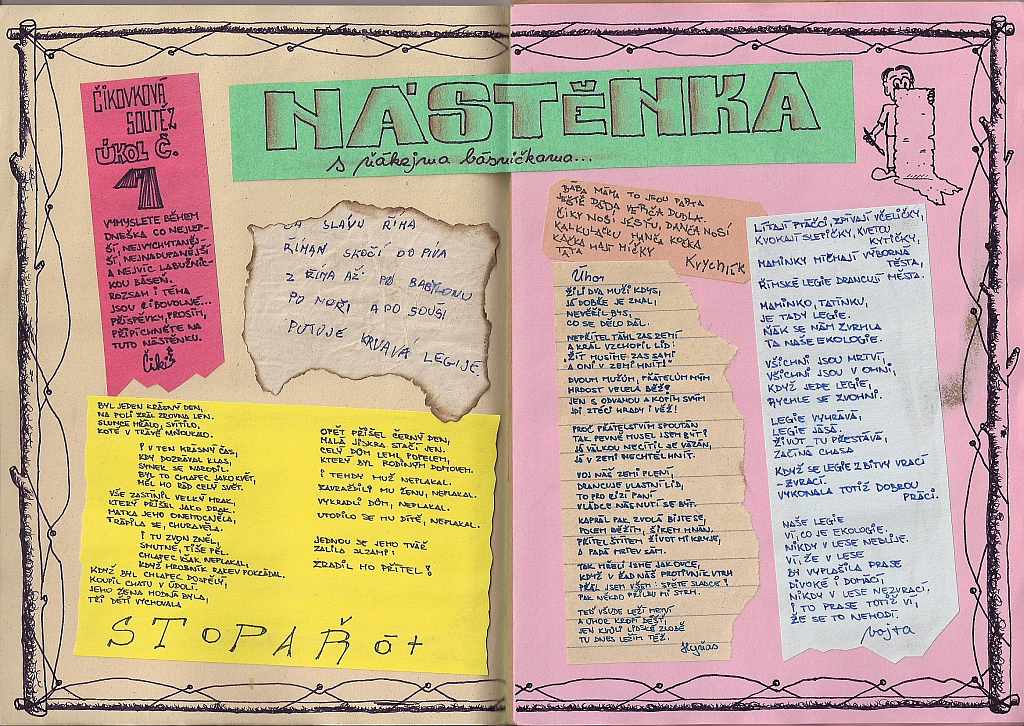 NÁSTĚNKA
s ňákejma básničkama...
ČIKOVKOVÁ
SOUTĚŽ
ÚKOL Č.
1
VYMYSLETE BĚHEM
DNEŠKA CO NEJLEP-
ŠÍ, NEJVYCHYTANĚJ-
ŠÍ, NEJNADUPANĚJŠÍ
A NEJVÍC LABUŽNIC-
KOU BÁSEŇ.
ROZSAH I TÉMA
JSOU LIBOVOLNÉ...
PŘÍSPĚVKY, PROSÍM,
PŘIPÍCHNĚTE NA
TUTO NÁSTĚNKU.
Čiki
SLÁVU ŘÍMA
ŘÍMAN SKOČÍ DO PIVA
Z ŘÍMA AŽ PO BABYLONU
PO MOŘI A PO SOUŠI
PUTUJE KRVAVÁ LEGIJE
BYL JEDEN KRÁSNÝ DEN,
NA POLI ZRÁL ZROVNA LEN.
SLUNCE HŘÁLO, SVÍTILO,
KOTĚ V TRÁVĚ MŇOUKALO.
I V TEN KRÁSNÝ ČAS,
KDY DOZRÁVAL KLAS,
SYNEK SE NARODIL.
BYL TO CHLAPEC JAKO KVĚT,
MĚL HO RÁD CELÝ SVĚT.
VŠE ZASTÍNIL VELKÝ MRAK,
KTERÝ PŘIŠEL JAKO DRAK.
MATKA JEHO ONEMOCNĚLA,
TRÁPILA SE, CHURAVĚLA.
I TU ZVON ZNĚL,
SMUTNĚ, TIŠE PĚL.
CHLAPEC VŠAK NEPLAKAL,
KDYŽ HROBNÍK RAKEV POKLÁDAL.
KDYŽ BYL CHLAPEC DOSPĚLÝ,
KOUPIL CHATU V ÚDOLÍ.
JEHO ŽENA HODNÁ BYLA,
TŘI DĚTI VYCHOVALA
OPĚT PŘIŠEL ČERNÝ DEN,
MALÁ JISKRA STAČÍ JEN.
CELÝ DŮM LEHL POPELEM,
KTERÝ BYL RODINNÝM DOMOVEM.
I TEHDY MUŽ NEPLAKAL.
ZAVRAŽDILI MU ŽENU, NEPLAKAL.
VYKRADLI DŮM, NEPLAKAL.
UTOPILO SE MU DÍTĚ, NEPLAKAL.
JEDNOU SE JEHO TVÁŘ
ZALILA SLZAMI:
ZRADIL HO PŘÍTEL!
STOPAŘ
BÁBA MÁMA TO JSOU PARTA
JEŠTĚ DÁDA VEPIČA DUDLA.
ČIKY NOSÍ JEŠTU, DANČA NOSÍ
KALKULAČKU DANČA KOČKA
KAČKA HÁJÍ MÍČKY
TÁTA
Krychník
Úhor
ŽILI DVA MUŽI KDYSI,
JÁ DOBŘE JE ZNAL,
NEVĚŘIL BYS,
CO SE DĚLO DÁL.
NEPŘÍTEL TÁHL ZAS ZEMÍ
A KRÁL VZCHOPIL LID:
„ŽÍT MUSÍME ZAS SAMI
A ONI V ZEMI HNÍT!“
DVOUM MUŽŮM, PŘÁTELŮM MÝM
HRDOST VELELA BĚŽ!
JEN S ODVAHOU A KOPÍM SVÝM
JDI ZTÉCI HRADY I VĚŽ!
PROČ PŘÁTELSTVÍM SPOUTÁN
TAK PEVNĚ MUSEL JSEM BÝT?
JÁ VÁLKOU NECÍTIL JE VÁZÁN,
JÁ V ZEMI NECHTĚL HNÍT.
VOJ NÁŠ ZEMI PLENÍ,
DRANCUJE VLASTNÍ LID,
TO PRO CIZÍ PANÍ
VLÁDCE NÁS NUTÍ SE BÍT.
KAPRÁL PAK ZVOLÁ BIJTE SE,
POKEM BĚŽÍM, ŠÍKEM HNÁN,
PŘÍTEL ŠTÍTEM ŽIVOT MI KRYJE,
A PADÁ MRTEV SÁM.
TAK MŘELI JSME JAK OVCE,
KDYŽ V ŘAD NÁŠ PROTIVNÍK VTRH
PŘÁL JSEM VŠEM: SPĚTE SLADCE!
PAK NĚKDO PŘILBU MI STRH.
TEĎ VŠUDE LEŽÍ MRTVÍ
A ÚHOR KROPÍ DÉŠŤ,
JEN KVŮLI LIDSKÉ ZLOBĚ
TU DNES LEŽÍM TÉŽ.
Hyňas
LÍTAJÍ PTÁČCI, ZPÍVAJÍ VČELIČKY,
KVOKAJÍ SLEPIČKY, KVETOU
KYTIČKY,
MAMINKY MÍCHAJÍ VÝBORNÁ
TĚSTA,
ŘÍMSKÉ LEGIE DRANCUJÍ MĚSTA.
MAMINKO, TATÍNKU,
JE TADY LEGIE.
ŇÁK SE NÁM ZVRHLA
TA NAŠE EKOLOGIE.
VŠICHNI JSOU MRTVÍ,
VŠICHNI JSOU V OHNI,
KDYŽ JEDE LEGIE,
RYCHLE SE ZVOHNI.
LEGIE VYHRÁVÁ,
LEGIE JÁSÁ.
ŽIVOT TU PŘESTÁVÁ,
ZAČÍNÁ CHASA
KDYŽ SE LEGIE Z BITVY VRACÍ
-ZVRACÍ.
VYKONALA TOTIŽ DOBROU
PRÁCI.
NAŠE LEGIE
VÍ, CO JE EKOLOGIE.
NIKDY V LESE NEBLIJE.
VÍ, ŽE V LESE
BY VYPLAŠILA PRASE
DIVOKÉ I DOMÁCÍ
NIKDY V LESE NEZVRACÍ.
I TO PRASE TOTIŽ VÍ,
ŽE SE TO NEHODÍ.
Vojta